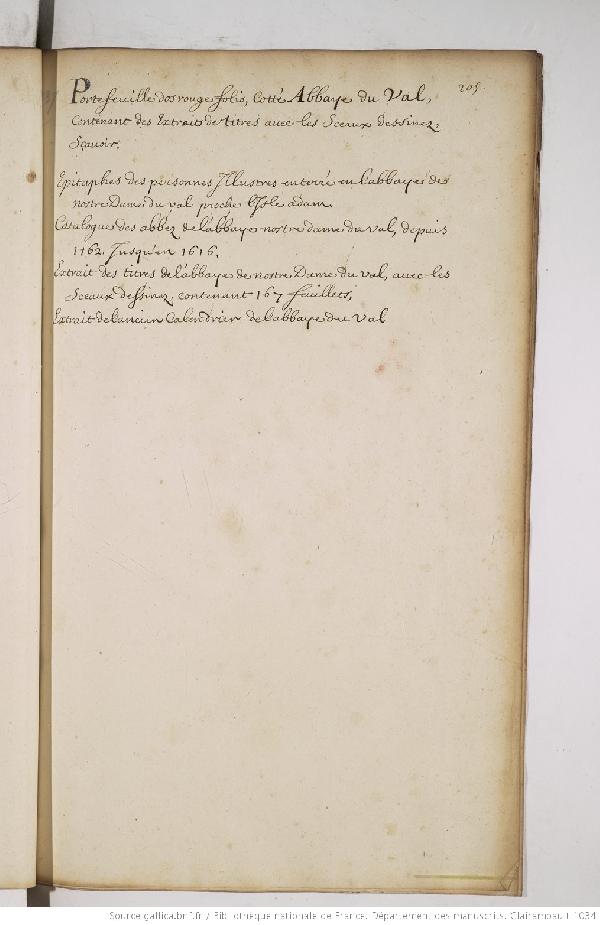 205.
Portefeuille dos rouge folio, Cotté Abbaye du Val,
Contenant des Extraits de titres avec les Sceaux dessinez,
Sçavoir,
Epitaphes des personnes Illustres enterré en l'abbaye de
nostre Dame du val proche l'Isle adam
Catalogue des abbéz de l'abbaye nostre dame du val, depuis
1162. Jusqu'en 1616.
Extrait des titres de l'abbaye de nostre Dame du val, avec les
Sceaux dessinez, contenant 167 feuillets,
Extrait de l'ancien Calendrier de l'abbaye du Val
Source gallica.bnf.fr / Bibliothèque nationale de France. Département des manuscrits. Clairambault 1034